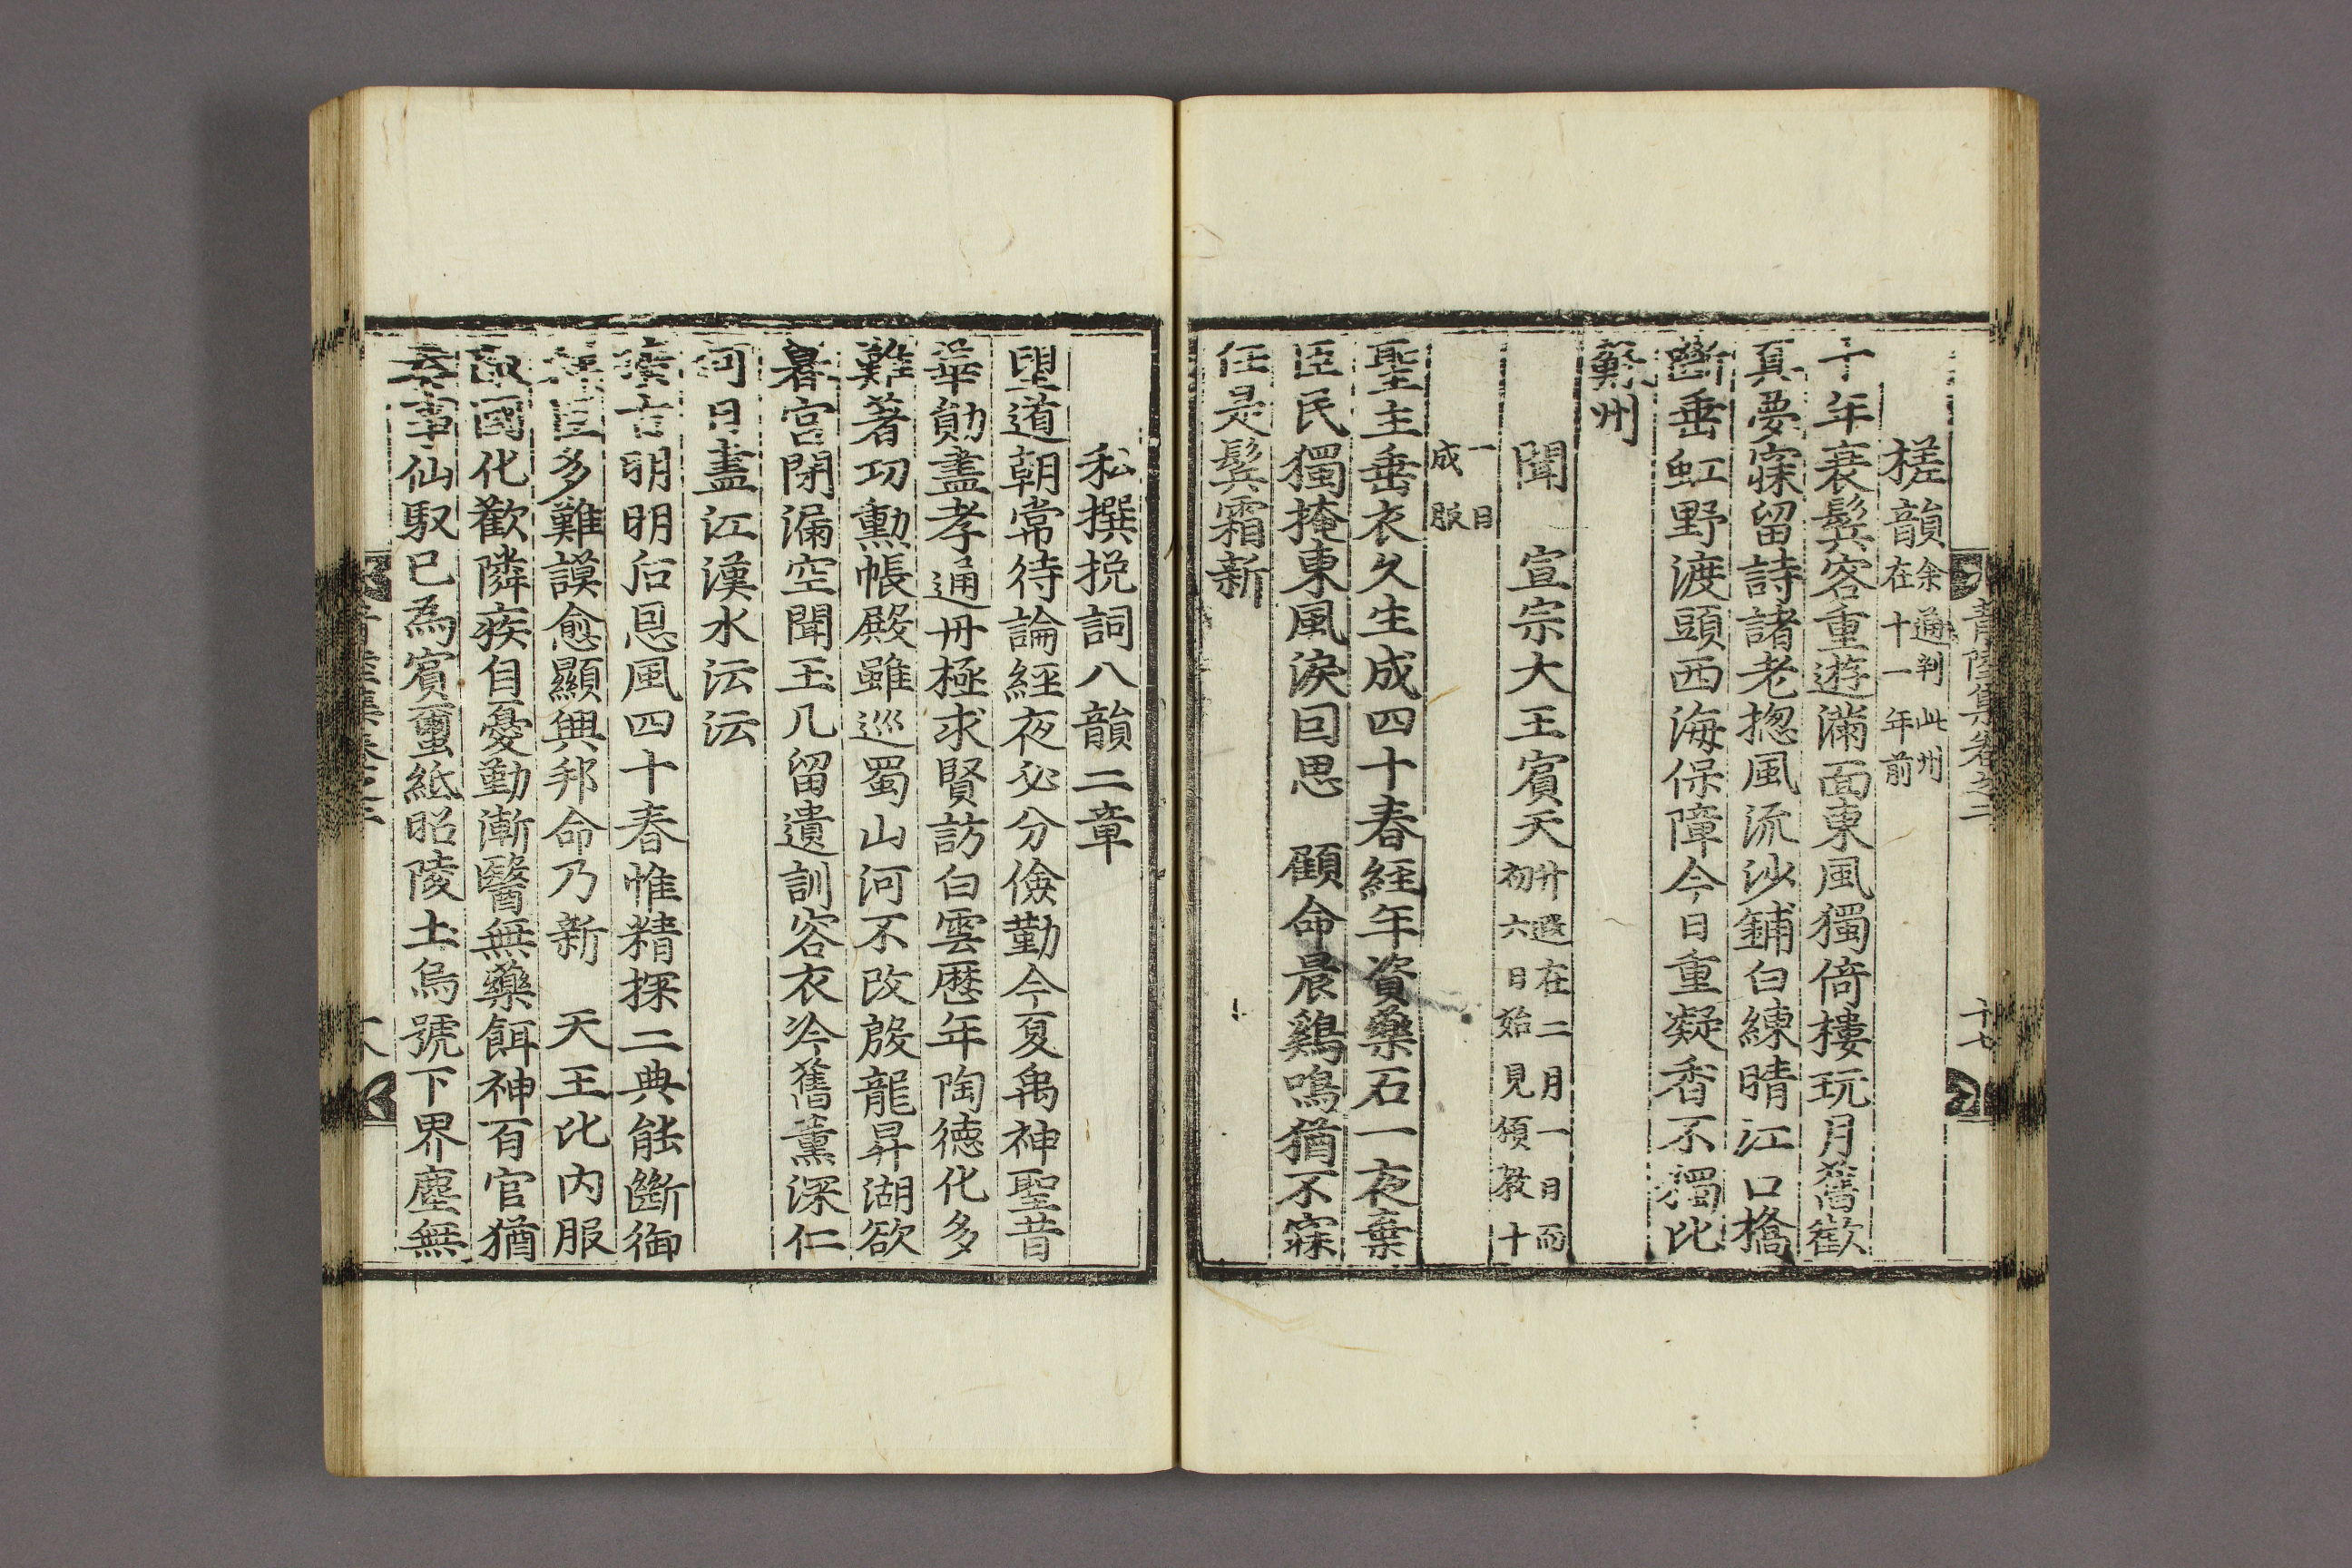 槎韻余通判此州在十一年前
十年衰鬂容重遊滿面東風獨倚樓玩月舊歡
真夢寐留詩諸老揔風流沙鋪白練晴江口橋
斷垂虹野渡頭西海保障今日重凝香不獨比
蘇州
聞 宣宗大王賓天升遐在二月一日而初六日始見頒教十
一日成服
聖主垂衣久生成四十春経年資藥石一夜棄
臣民獨掩東風淚回思 顧命晨鷄鳴猶不寐
任是鬂霜新
青陸集卷之二
十七
私撰挽詞八韻二章
望道朝常待論経夜必分儉勤今夏禹神聖昔
華勛盡孝通冊極求賢訪白雲歴年陶徳化多
難著功勳帳殿雖巡蜀山河不改殷龍昇湖欲
暮宮閉漏空聞玉几留遺訓容衣冷舊薰深仁
何日盡江漢水沄沄
言明明后恩風四十春惟精探二典能斷御
臣多難謨愈顯興邦命乃新 天王比内服
國化歡隣疾自憂勤漸醫無藥餌神百官猶
事仙馭已為賓璽紙昭陵土烏號下界塵無